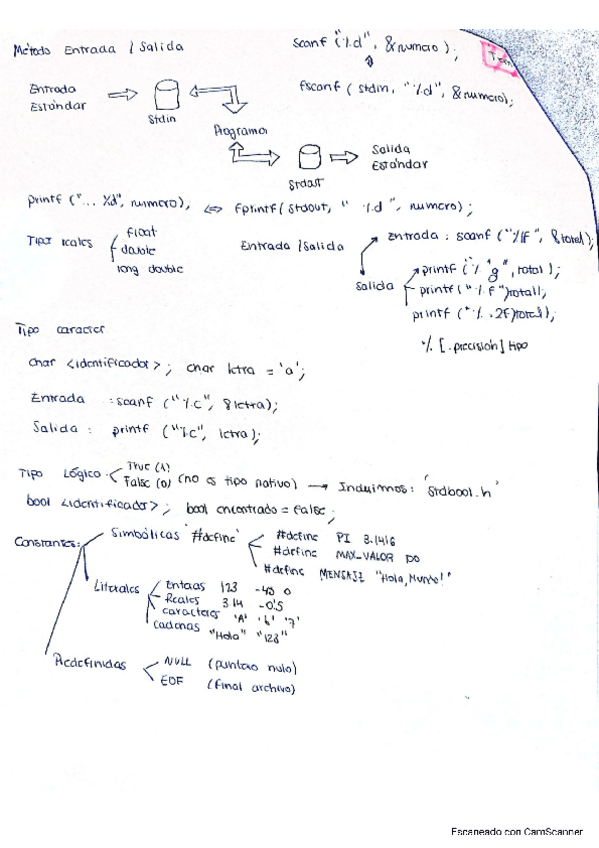 Método Entrada / Salida
scanf ("%d", &numero);
Entrada
Estándar
Stdin
fscanf ( stdin, "%d", &numero);
Programa
Salida
Estándar
Stdout
printf ("... %d", numero), <=> fprintf( stdout, " %d ", numero);
Tipos reales
float
double
long double
Entrada / Salida
Entrada : scanf ("%lf", &total);
Salida
printf ("% g", total);
printf ("%f")total);
printf ("%.2f)total);
% [.precision] tipo
Tipo caracter
char <identificador>; char letra = 'a';
Entrada : scanf ("%c", &letra);
Salida : printf ("%c", letra);
Tipo Lógico
True (1)
False (0) (no es tipo nativo) → Incluimos: 'stdbool.h'
bool <identificador>; bool encontrado = False;
Constantes:
Simbólicas '#define'
#define PI 3.1416
#define MAX_VALOR
#define MENSAJE "Hola, Mundo!"
Literales
Enteras 123 -45 0
Reales 3.14 -0.5
caracteres 'A' 'b' '7'
cadenas "Hola" "123"
Predefinidas
NULL (puntero nulo)
EOF (final archivo)
Escaneado con CamScanner